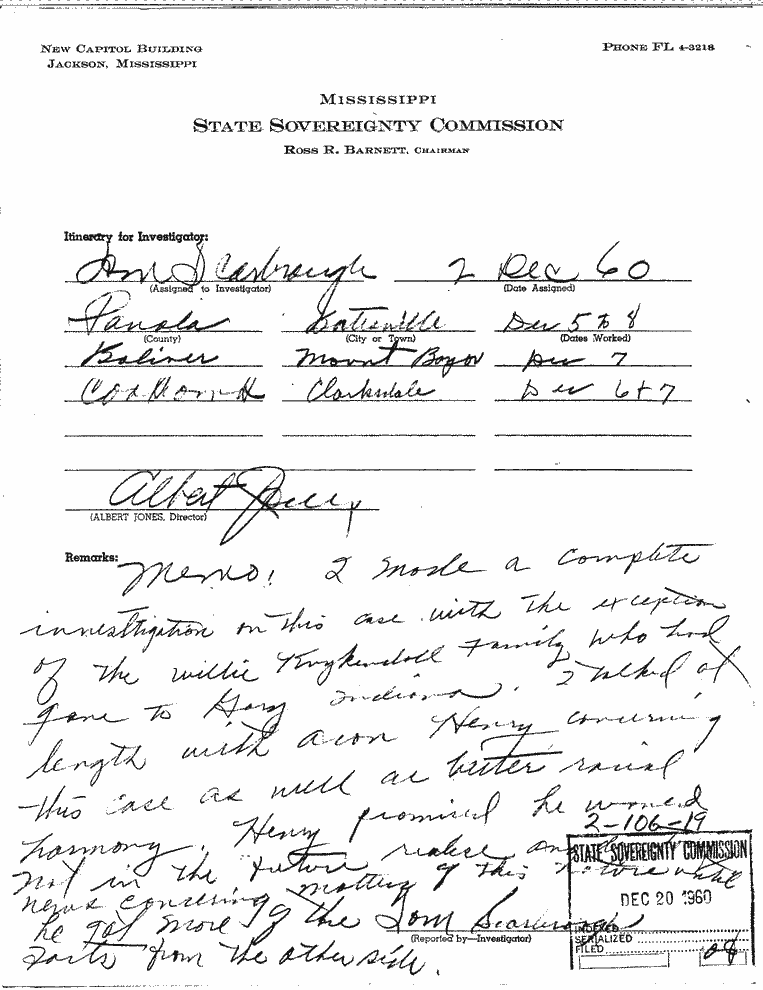 NEW CAPITOL BUILDING
JACKSON, MISSISSIPPI
PHONE FL 4-3218
MISSISSIPPI
STATE SOVEREIGNTY COMMISSION
ROSS R. BARNETT, CHAIRMAN
Itinerary for Investigator:
Tom Scarbrough 2 Dec 60
(Assigned to Investigator) (Date Assigned)
Panola Batesville Dec 5 to 8
(County) (City or Town) (Dates Worked)
Boliver Mount Bayou Dec 7
Coahoma Clarksdale Dec 6 + 7
Albert Jones
(ALBERT JONES, Director)
Remarks:
Memo: I made a complete
investigation on this case with the exception
of the Willie Kuykendoll Family who had
gone to Gary Indiana. I talked at
length with Aron Henry concerning
this case as well as better racial
harmony. Henry promised he would
2-106-19
not in the future realese any
news concerning matters of this nature until
he got more of the
facts from the other side.
Tom Scarbrough
(Reported by—Investigator)
STATE SOVEREIGNTY COMMISSION
DEC 20 1960
INDEXED
SERIALIZED
FILED